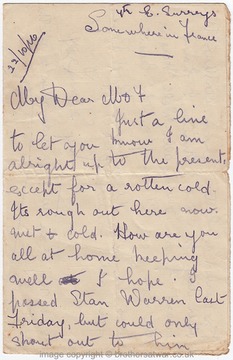 4th E. Surreys
Somewhere in France
22/10/16
My Dear Mo &
Just a line
to let you know I am
alright up to the present,
except for a rotten cold.
Its rough out here now.
wet & cold. How are you
all at home keeping
well I hope I
passed Stan Warren last
Friday, but could only
shout out to him